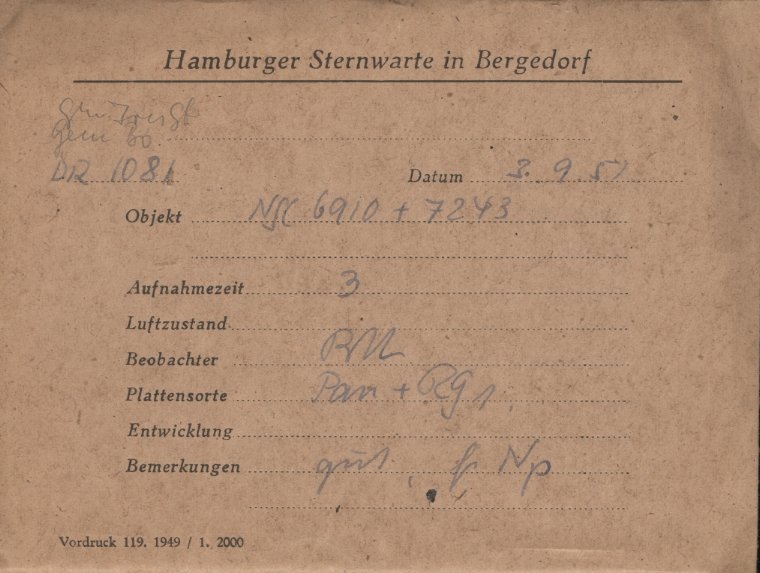 Hamburger Sternwarte in Bergedorf
DR 1081
Datum 3. 9. 51
Objekt NGC 6910 + 7243
Aufnahmezeit 3
Luftzustand
Beobachter
Plattensorte Pan + RG 1
Entwicklung
Bemerkungen gut, Np
Vordruck 119. 1949 / 1. 2000